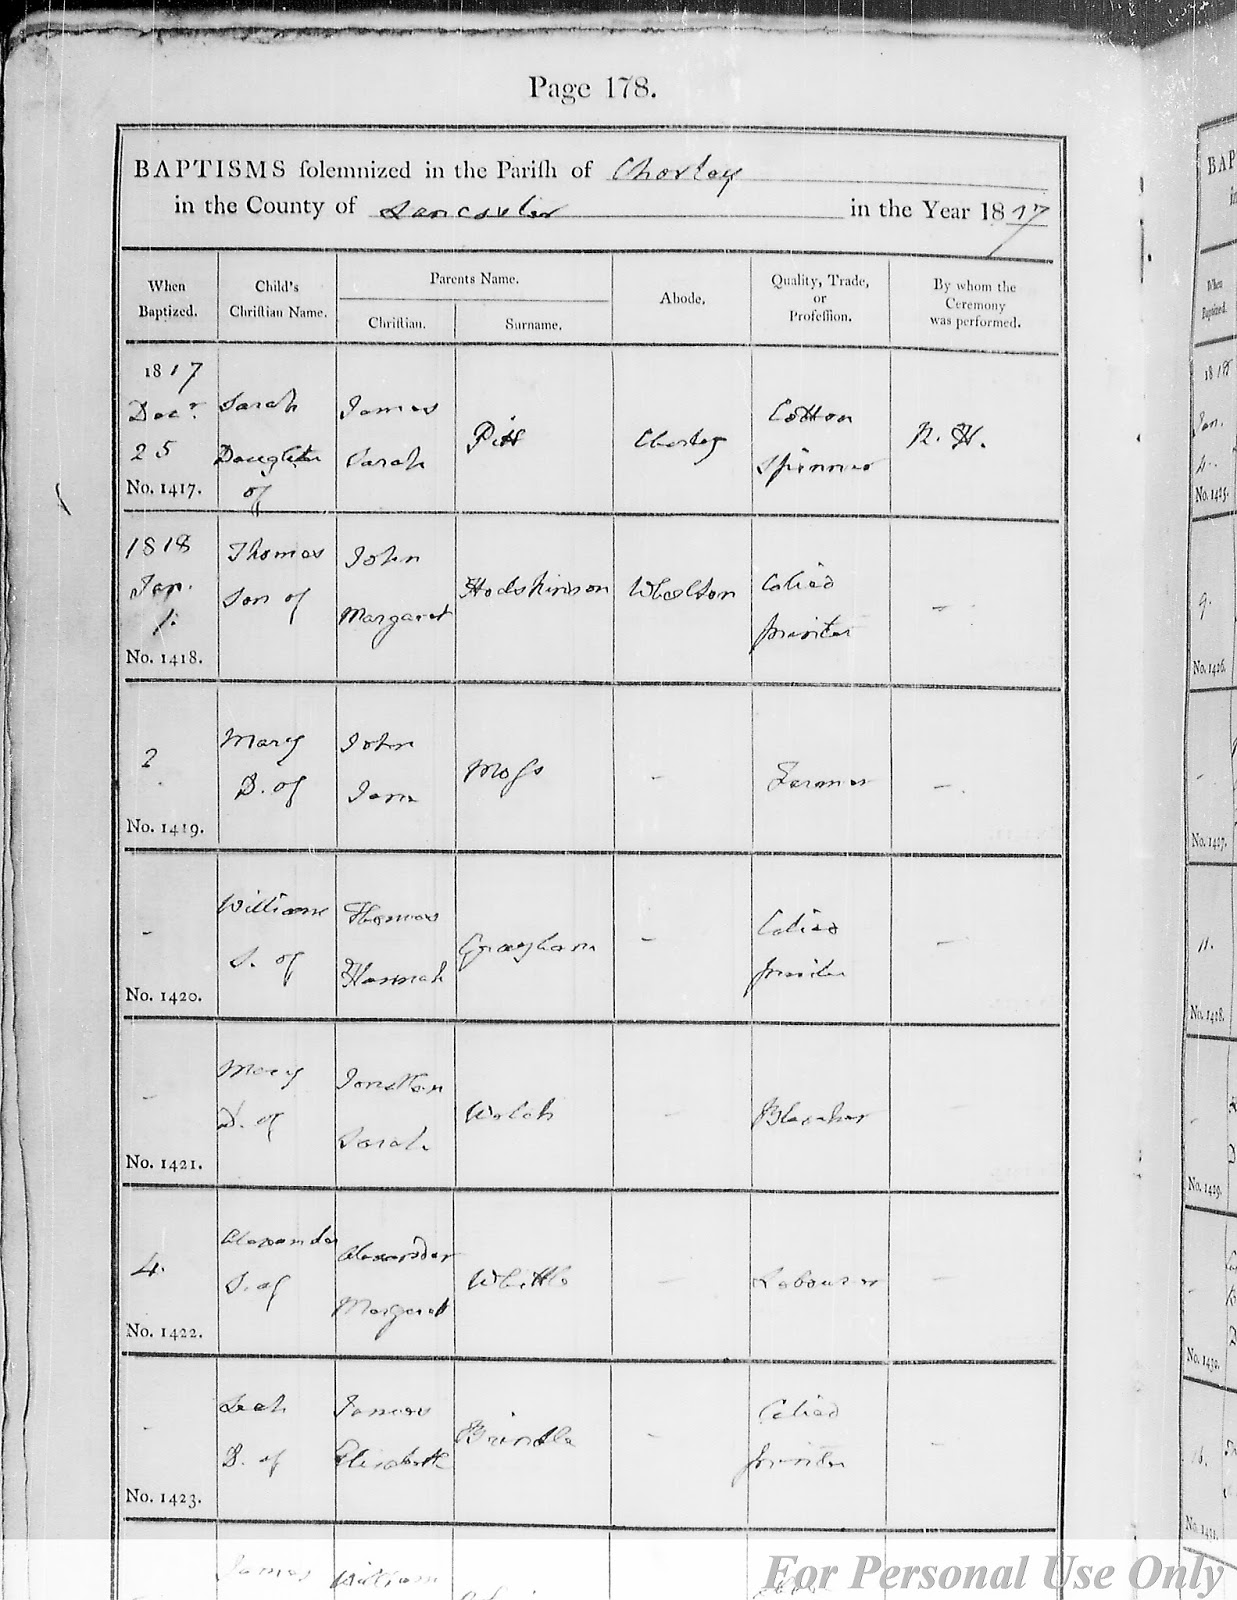 Page 178.
BAPTISMS solemnized in the Parish of Chorley
in the County of Lancaster in the Year 1817
When Baptized.
Child's Christian Name.
Parents Name.
Christian.
Surname.
Abode.
Quality, Trade, or Profession.
By whom the Ceremony was performed.
1817
Decr.
25
No. 1417.
Sarah
Daughter
of
James
Sarah
Pitt
Chorley
Cotton
Spinner
R. H.
1818
Jan.
1.
No. 1418.
Thomas
Son of
John
Margaret
Hodskinson
Wheelton
Calico
printer
-
2
No. 1419.
Mary
D. of
John
Jane
Moss
-
Farmer
-.
-
No. 1420.
William
S. of
Thomas
Hannah
Grayham
-
Calico
printer
-
-
No. 1421.
Mary
D. of
Jonathan
Sarah
Walch
-
Bleacher
-
4.
No. 1422.
Alexander
S. of
Alexander
Margaret
Whittle
-
Labourer
-
-
No. 1423.
Leah
D. of
James
Elizabeth
Brindle
-
Calico
printer
-
James
William
For Personal Use Only
BAP
When
Baptized.
1818
Jan.
4.
No. 1425.
9.
No. 1426.
-
No. 1427.
11.
No. 1428.
-
No. 1429.
-
No. 1430.
16.
No. 1431.